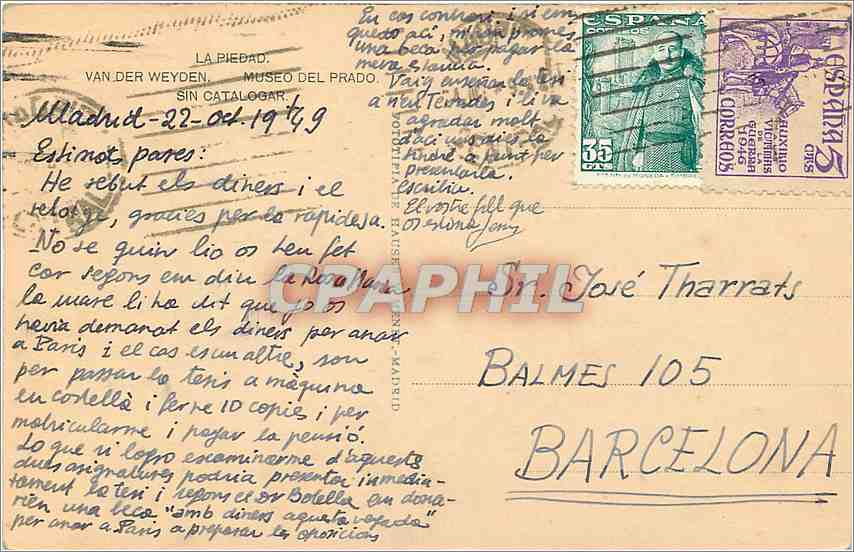 LA PIEDAD.
VAN DER WEYDEN. MUSEO DEL PRADO.
SIN CATALOGAR.
Madrid-22-oct. 1949
Estimats pares:
He rebut els diners i el
relotge, gracies per la rapidesa.
No se quin lio os heu fet
car segons em diu la Rosa Maria
la mare li ha dit que jo os
havia demanat els diners per anar
a Paris i el cas es un altre, son
per passar la tesis a màquina
en castellà i ferne 10 copies i per
matricularme i pagar la pensió.
Lo que si logro examinarme d'aquests
dues asignatures podria presentar inmedia-
tament la tesi i segons el Dr Botella em dona-
rien una beca "amb diners aquesta vegada"
per anar a Paris a preparar les oposicions
En cas contrari i si em
quedo aci, m'han promes
una beca per pagar la
meva estancia.
Vaig enseñar la tesi
a n'en Terrades i li va
agradar molt
d'aci uns dies la
tindré a punt per
presentarla.
Escriviu.
El vostre fill que
os estima
ESPAÑA
CORREOS
35
CTS
ESPAÑA 5
CTS
AUXILIO
A LAS
VICTIMAS
DE LA
GUERRA
1946
CORREOS
CPAPHIL
FOTOTIPIA DE HAUSER Y MENET.-MADRID
Sr. José Tharrats
BALMES 105
BARCELONA